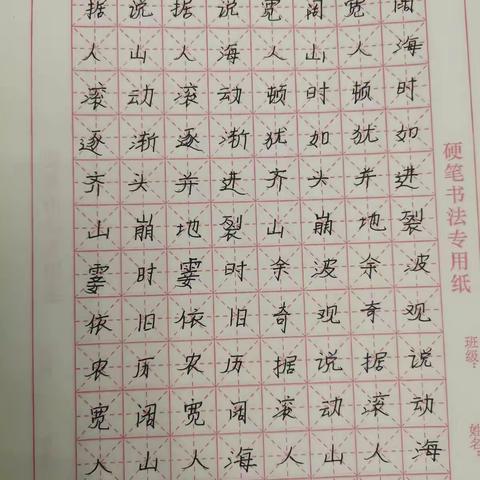 据说据说宽阔宽阔
人山人海人山人海
滚动滚动顿时顿时
逐渐逐渐犹如犹如
齐头并进齐头并进
山崩地裂山崩地裂
霎时霎时余波余波
依旧依旧奇观奇观
农历农历据说据说
宽阔宽阔滚动滚动
人山人海人山人海
硬笔书法专用纸
班级:
姓名: